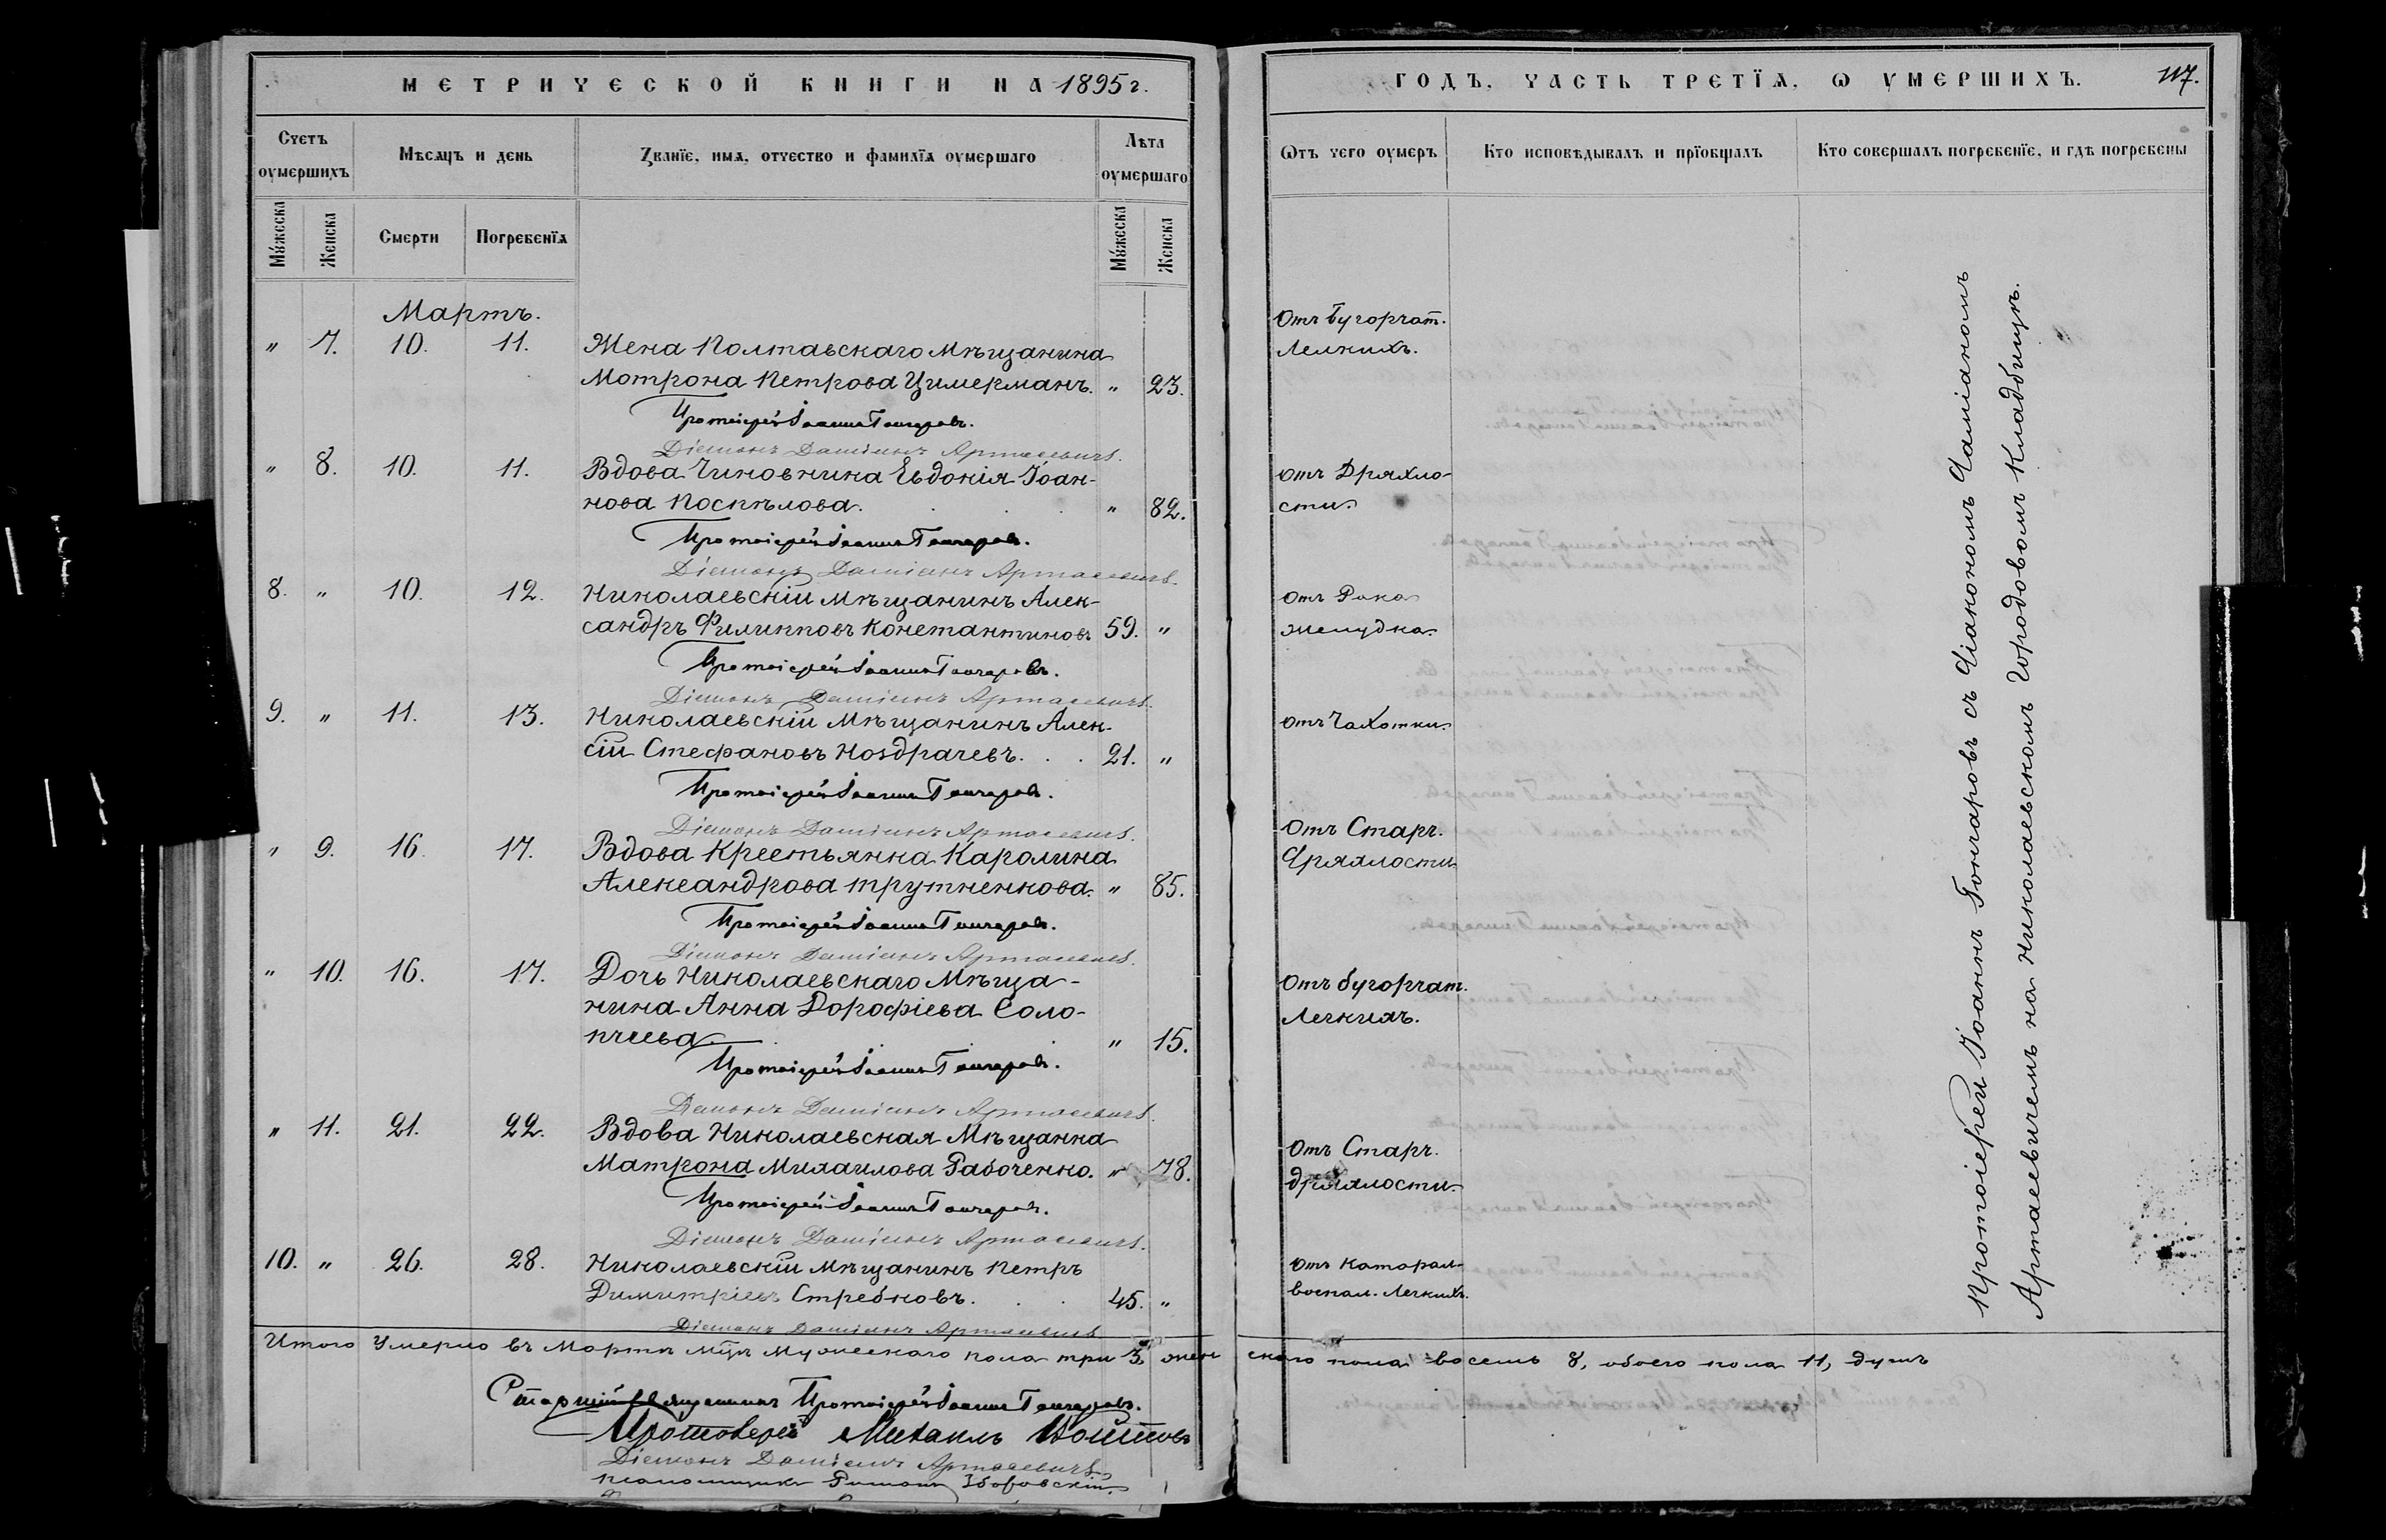 МЕТРИЧЕСКОЙ КНИГИ НА 1895 г.
Счетъ оумершихъ
Мѣсяцъ и день
Званїе, имя, отчество и фамилїя оумершаго
Лѣта оумершаго
Мꙋжеска
Женска
Смерти
Погребенїя
Мꙋжеска
Женска
Мартъ.
" 7. 10. 11. Жена Полтавскаго Мѣщанина
Мотрона Петрова Цимерманъ. " 23.
Протоіерей Іоаннъ Гончаровъ.
Діаконъ Даміанъ Артасевичъ.
" 8. 10. 11. Вдова Чиновника Евдокія Іоан-
нова Поспѣлова. " 82.
Протоіерей Іоаннъ Гончаровъ.
Діаконъ Даміанъ Артасевичъ.
8. " 10. 12. Николаевскій Мѣщанинъ Алек-
сандръ Филипповъ Константиновъ 59. "
Протоіерей Іоаннъ Гончаровъ.
Діаконъ Даміанъ Артасевичъ.
9. " 11. 13. Николаевскій Мѣщанинъ Алек-
сій Стефановъ Ноздрачевъ. 21. "
Протоіерей Іоаннъ Гончаровъ.
Діаконъ Даміанъ Артасевичъ.
" 9. 16. 17. Вдова Крестьянка Каролина
Александрова Трутненкова. " 85.
Протоіерей Іоаннъ Гончаровъ.
Діаконъ Даміанъ Артасевичъ.
" 10. 16. 17. Дочь Николаевскаго Мѣща-
нина Анна Дорофіева Соло-
пчеева " 15.
Протоіерей Іоаннъ Гончаровъ.
Діаконъ Даміанъ Артасевичъ.
" 11. 21. 22. Вдова Николаевская Мѣщанка
Матрона Михаилова Рабоченко. " 78.
Протоіерей Іоаннъ Гончаровъ.
Діаконъ Даміанъ Артасевичъ.
10. " 26. 28. Николаевскій Мѣщанинъ Петръ
Димитріевъ Стребковъ. 45. "
Діаконъ Даміанъ Артасевичъ
Итого Умерло въ Мартѣ Мцѣ Мужескаго пола три 3, жен
Старшій Священникъ Протоіерей Іоаннъ Гончаровъ.
Протоіерей Михаилъ
Діаконъ Даміанъ Артасевичъ
Псаломщикъ Романъ Зборовскій
ГОДЪ, ЧАСТЬ ТРЕТЇЯ, Ѡ УМЕРШИХЪ. 117.
Ѿтъ чего оумеръ
Кто исповѣдывалъ и прїобщалъ
Кто совершалъ погребенїе, и гдѣ погребены
Отъ бугорчат.
Легкихъ.
отъ Дряхло-
сти.
отъ Рака
желудка.
отъ Чахотки.
Отъ Стар.
Дряхлости
Отъ бугорчат.
Легкихъ.
Отъ Стар.
дряхлости.
Отъ Катарал.
воспал. Легкихъ.
Протоіерей Іоаннъ Гончаровъ съ Діакономъ Даміаномъ
Артасевичемъ на Николаевскомъ Городовомъ Кладбищѣ.
скаго пола восемь 8, обоего пола 11, душъ